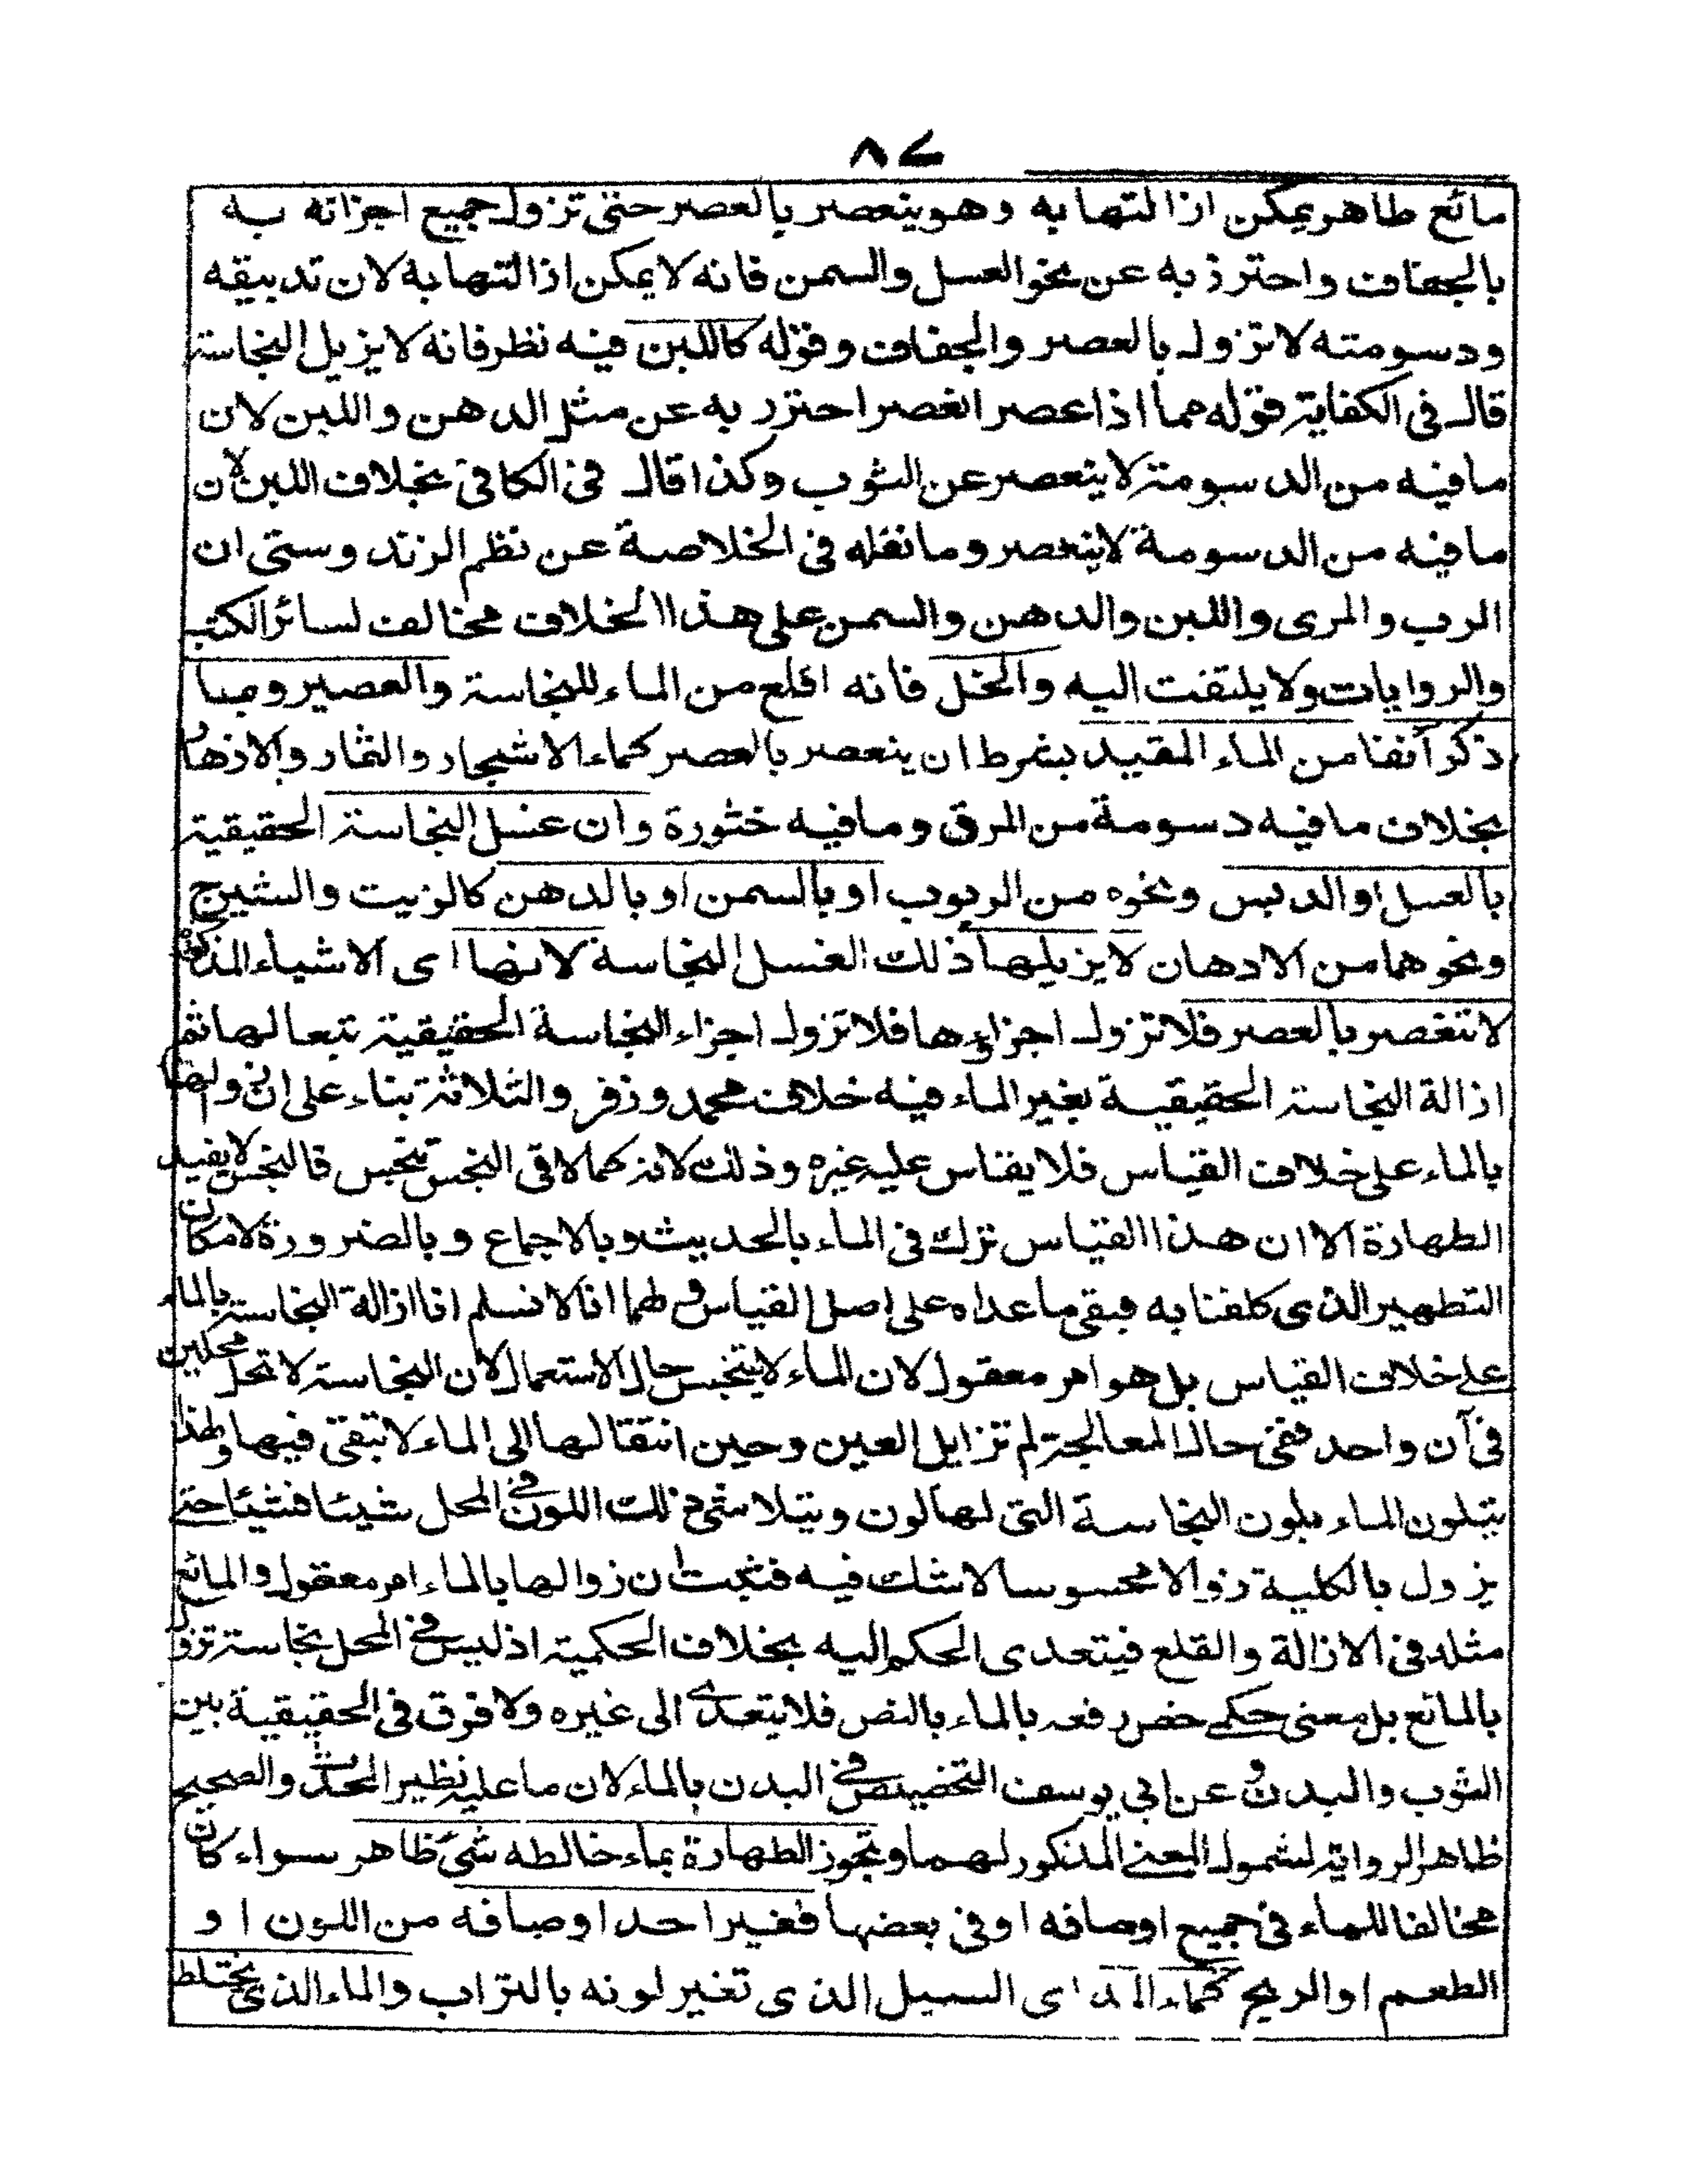 ٨٧
مائع طاهر يمكن ازالتها به وهو ينعصر بالعصر حتى تزول جميع اجزائه به
بالجفاف واحترز به عن نحو العسل والسمن فانه لا يمكن ازالتها به لان تدبيقه
ودسومته لا تزول بالعصر والجفاف وقوله كاللبن فيه نظر فانه لا يزيل النجاسة
قال في الكفاية قوله مما اذا عصر انعصر احترز به عن مثل الدهن واللبن لان
ما فيه من الدسومة لا ينعصر عن الثوب وكذا قال في الكافي بخلاف اللبن لان
ما فيه من الدسومة لا ينعصر وما نقله في الخلاصة عن نظم الزندوستى ان
الرب والمرى واللبن والدهن والسمن على هذا الخلاف مخالف لسائر الكتب
والروايات ولا يلتفت اليه والخل فانه اقلع من الماء للنجاسة والعصير وما
ذكر آنفا من الماء المقيد بشرط ان ينعصر بالعصر كماء الاشجار والثمار والازهار
بخلاف ما فيه دسومة من المرق وما فيه خثورة وان غسل النجاسة الحقيقية
بالعسل او الدبس ونحوه من الربوب او بالسمن او بالدهن كالزيت والشيرج
ونحوهما من الادهان لا يزيلها ذلك الغسل النجاسة لانها اى الاشياء المذكورة
لا تنعصر بالعصر فلا تزول اجزاؤها فلا تزول اجزاء النجاسة الحقيقية تبعا لها ثم
ازالة النجاسة الحقيقية بغير الماء فيه خلاف محمد وزفر والثلاثة بناء على ان زوالها
بالماء على خلاف القياس فلا يقاس عليه غيره وذلك لانه كما لاقى النجس تنجس فالنجس لا يفيد
الطهارة الا ان هذا القياس ترك في الماء بالحديث وبالاجماع وبالضرورة لامكان
التطهير الذى كلفنا به فبقى ما عداه على اصل القياس ولهما انا لا نسلم انا ازالة النجاسة بالماء
على خلاف القياس بل هو امر معقول لان الماء لا يتنجس حال الاستعمال لان النجاسة لا تحل محلين
في آن واحد ففي حال المعالجة لم تزايل العين وحين انتقالها الى الماء لا تبقى فيها ولهذا
يتلون الماء بلون النجاسة التى لها لون ويتلاشى ذلك اللون في المحل شيئا فشيئا حتى
يزول بالكلية زوالا محسوسا لا شك فيه فثبت ان زوالها بالماء امر معقول والمائع
مثله في الازالة والقلع فيتعدى الحكم اليه بخلاف الحكمية اذ ليس في المحل نجاسة تزول
بالمائع بل معنى حكمى خص رفعه بالماء بالنص فلا يتعدى الى غيره ولا فرق في الحقيقية بين
الثوب والبدن وعن ابي يوسف التخصيص في البدن بالماء لان ما عليه نظير الحدث والصحيح
ظاهر الرواية لشمول المعنى المذكور لهما وتجوز الطهارة بماء خالطه شئ طاهر سواء كان
مخالفا للماء في جميع اوصافه او في بعضها فغير احد اوصافه من اللون او
الطعم او الريح كماء المد اى السيل الذى تغير لونه بالتراب والماء الذى يختلط